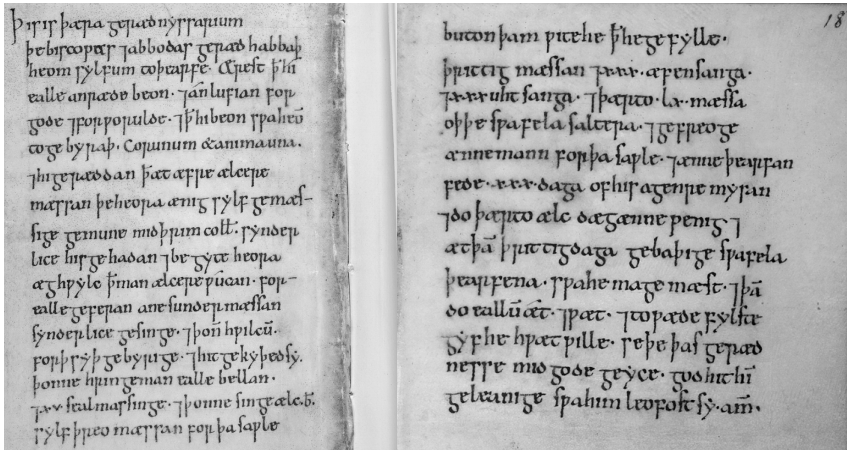 Þis is þæra gerædnyssa rium
þe biscopas ⁊ abbodas geræd habbaþ
heom sylfum to þearfe. Ærest ꝥ hi
ealle anræde beon. ⁊ an̄ lufian for
gode ⁊ for worulde. ⁊ ꝥ hi beon swa heō
to gebyraþ. Cor unum & anima una.
⁊ hi geræddan þæt æfre ælcere
mæssan þe heora ænig sylf gemæs-
sige gemune mid þrim coll̄. synder
lice his gehadan ⁊ begyte heora
æghwylc ꝥ man ælcere pucan. for-
ealle geferan ane sunder mæssan
synderlice gesinge. ⁊ þon̄ hwilcū.
forþsyþ gebyrige. ⁊ hit gekyþed sy.
þonne hringe man ealle bellan.
⁊ xxx sealmas singe. ⁊ þonne singe ælc .b̄.
sylf þreo mæssan for þa saple
18
buton þam wite he ꝥ he gefylle.
þrittig mæssan ⁊ xxx. æfensanga.
⁊ xxx uht sanga. ⁊ þærto .lx. mæssa
oþþe swa fela saltera. ⁊ gefreoge
ænne mann for þa saple. ⁊ ænne þearfan
fede .xxx. daga of his agenre myran
⁊ do þærto ælc dæg ænne penig. ⁊
æt þā þrittig daga gebaþige swa fela
þearfena. swa he mage mæst. ⁊ þā
do eallū æt. ⁊ wæt. ⁊ to wæde fylste
gyf he hwæt wille. se þe þas geræd
nesse mid gode geyce. god hit hī
geleanige swa him leofost sy. am̄.